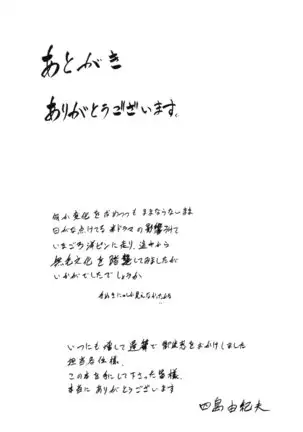 あとがき
ありがとうございます。
何か変化を求めつつもままならないまま
日がな点けてる米ドラマの影響うけて
いまごろ洋ピンに走り、途中から
無毛文化を踏襲してみましたが
いかがでしたでしょうか
いつにも増して遅筆で御迷惑をおかけしました
担当各位様、
この本を手にして下さった皆様、
本当にありがとうございます
四島由紀夫